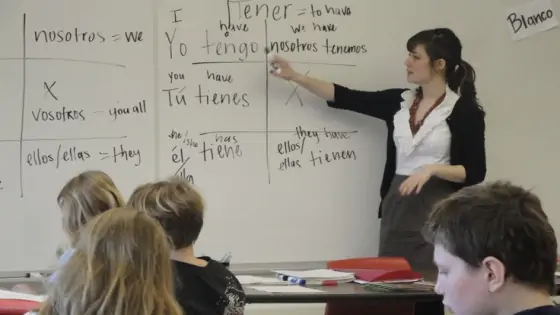 nosotros = we
X
vosotros - you all
ellos/ellas = they
Tener = to have
I have
Yo tengo
we have
nosotros tenemos
you have
Tú tienes
X
he/she has
él/ella tiene
they have
ellos/
ellas tienen
Blanco